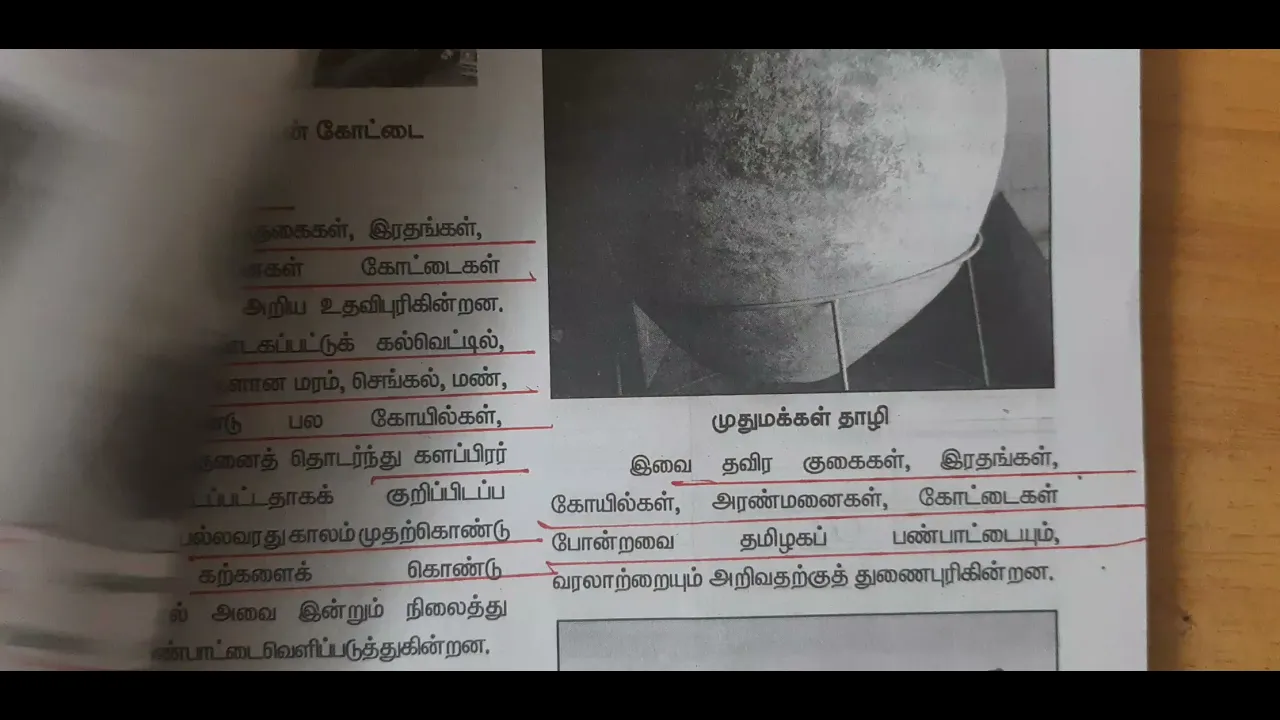 கோட்டை
குகைகள், இரதங்கள்,
கோட்டைகள்
அறிய உதவிபுரிகின்றன.
கல்வெட்டில்,
மரம், செங்கல், மண்,
பல கோயில்கள்,
தொடர்ந்து களப்பிரர்
குறிப்பிடப்ப
பல்லவரது காலம் முதற்கொண்டு
கற்களைக் கொண்டு
அவை இன்றும் நிலைத்து
முதுமக்கள் தாழி
இவை தவிர குகைகள், இரதங்கள்,
கோயில்கள், அரண்மனைகள், கோட்டைகள்
போன்றவை தமிழகப் பண்பாட்டையும்,
வரலாற்றையும் அறிவதற்குத் துணைபுரிகின்றன.